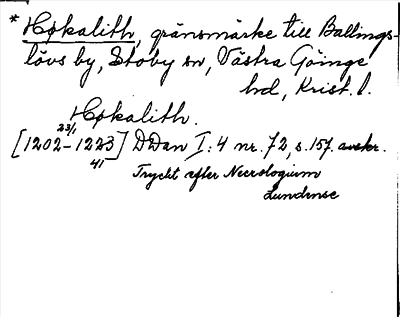 * Høkalith, gränsmärke till Ballings-
lövs by, Stoby sn, Västra Göinge
hd, Krist. l.
Høkalith.
23/1
[1202–1223] DDan I:4 nr. 72, s. 157. avskr.
41
Tryckt efter Necrologium
Lundense